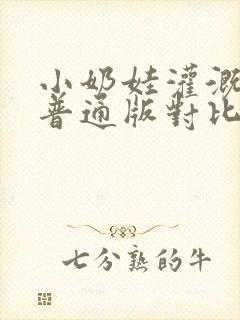 小奶娃灌溉
普通版對比
七分熟的牛